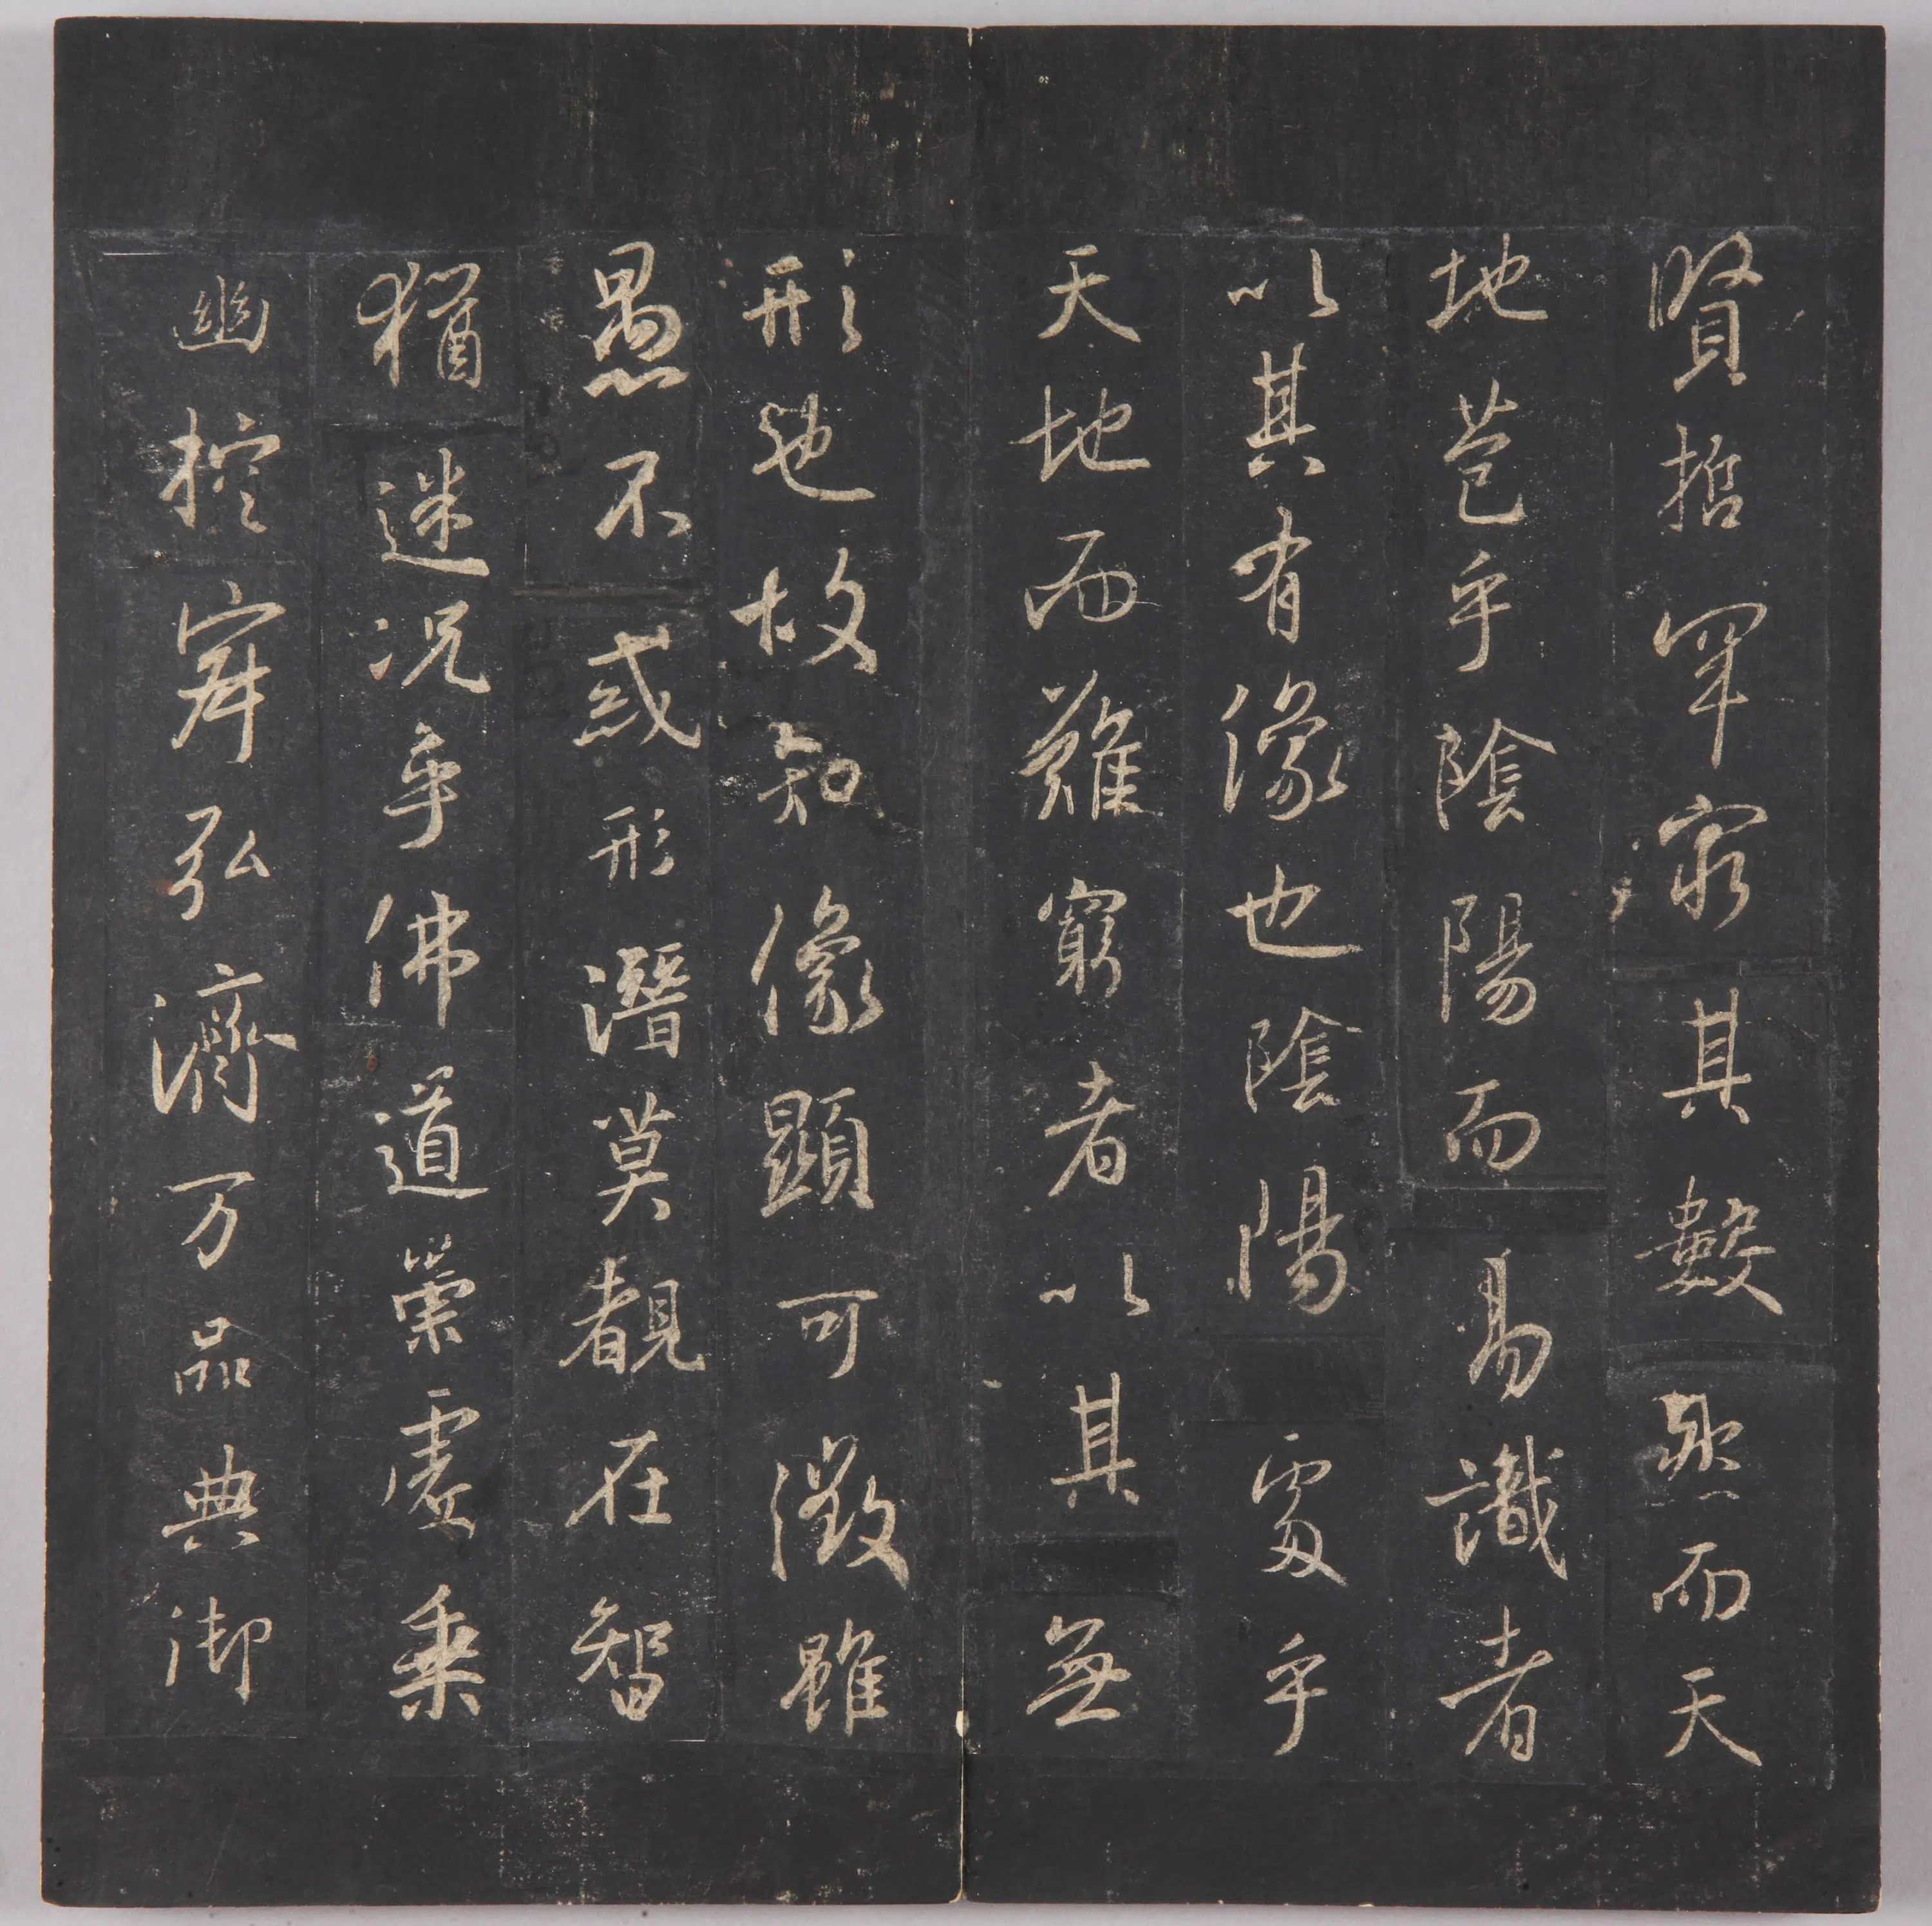 賢哲罕窮其數然而天
地苞乎陰陽而易識者
以其有像也陰陽處乎
天地而難窮者以其無
形也故知像顯可徵雖
愚不惑形潛莫覩在智
猶迷況乎佛道崇虛乘
幽控寂弘濟万品典御